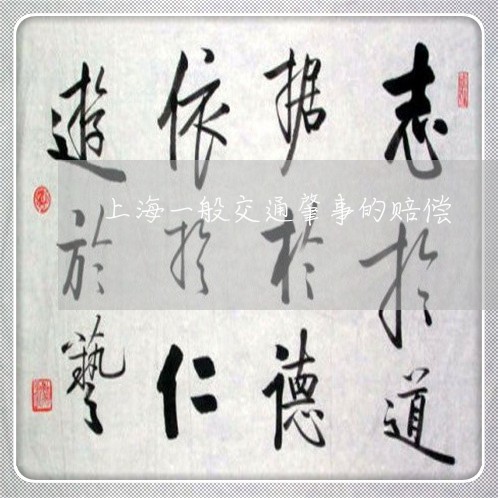 志於道
据於德
依於仁
遊於藝
上海一般交通肇事的赔偿